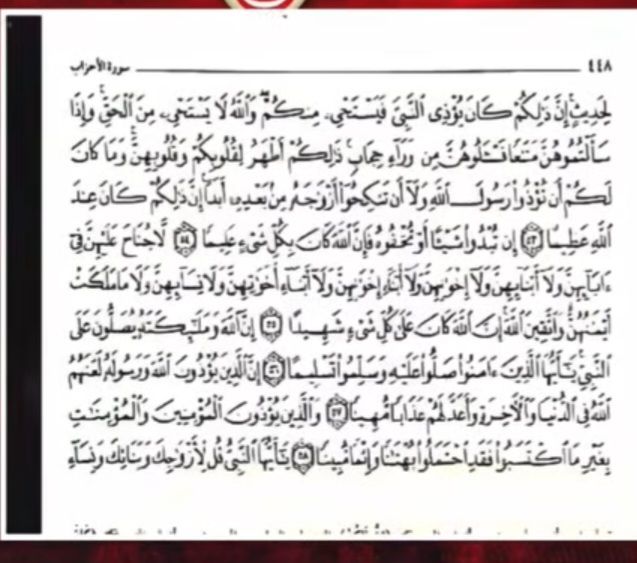 ٤٤٨ سورة الأحزاب
لِحَدِيثٍ إِنَّ ذَٰلِكُمْ كَانَ يُؤْذِى النَّبِىَّ فَيَسْتَحْىِۦ مِنكُمْ وَاللَّهُ لَا يَسْتَحْىِۦ مِنَ الْحَقِّ وَإِذَا
سَأَلْتُمُوهُنَّ مَتَٰعًا فَسْـَٔلُوهُنَّ مِن وَرَآءِ حِجَابٍ ذَٰلِكُمْ أَطْهَرُ لِقُلُوبِكُمْ وَقُلُوبِهِنَّ وَمَا كَانَ
لَكُمْ أَن تُؤْذُوا رَسُولَ اللَّهِ وَلَآ أَن تَنكِحُوٓا أَزْوَٰجَهُۥ مِنۢ بَعْدِهِۦٓ أَبَدًا إِنَّ ذَٰلِكُمْ كَانَ عِندَ
اللَّهِ عَظِيمًا ٥٣ إِن تُبْدُوا شَيْـًٔا أَوْ تُخْفُوهُ فَإِنَّ اللَّهَ كَانَ بِكُلِّ شَىْءٍ عَلِيمًا ٥٤ لَّا جُنَاحَ عَلَيْهِنَّ فِىٓ
ءَابَآئِهِنَّ وَلَآ أَبْنَآئِهِنَّ وَلَآ إِخْوَٰنِهِنَّ وَلَآ أَبْنَآءِ إِخْوَٰنِهِنَّ وَلَآ أَبْنَآءِ أَخَوَٰتِهِنَّ وَلَا نِسَآئِهِنَّ وَلَا مَا مَلَكَتْ
أَيْمَٰنُهُنَّ وَاتَّقِينَ اللَّهَ إِنَّ اللَّهَ كَانَ عَلَىٰ كُلِّ شَىْءٍ شَهِيدًا ٥٥ إِنَّ اللَّهَ وَمَلَٰٓئِكَتَهُۥ يُصَلُّونَ عَلَى
النَّبِىِّ يَٰٓأَيُّهَا الَّذِينَ ءَامَنُوا صَلُّوا عَلَيْهِ وَسَلِّمُوا تَسْلِيمًا ٥٦ إِنَّ الَّذِينَ يُؤْذُونَ اللَّهَ وَرَسُولَهُۥ لَعَنَهُمُ
اللَّهُ فِى الدُّنْيَا وَالْءَاخِرَةِ وَأَعَدَّ لَهُمْ عَذَابًا مُّهِينًا ٥٧ وَالَّذِينَ يُؤْذُونَ الْمُؤْمِنِينَ وَالْمُؤْمِنَٰتِ
بِغَيْرِ مَا اكْتَسَبُوا فَقَدِ احْتَمَلُوا بُهْتَٰنًا وَإِثْمًا مُّبِينًا ٥٨ يَٰٓأَيُّهَا النَّبِىُّ قُل لِّأَزْوَٰجِكَ وَبَنَاتِكَ وَنِسَآءِ